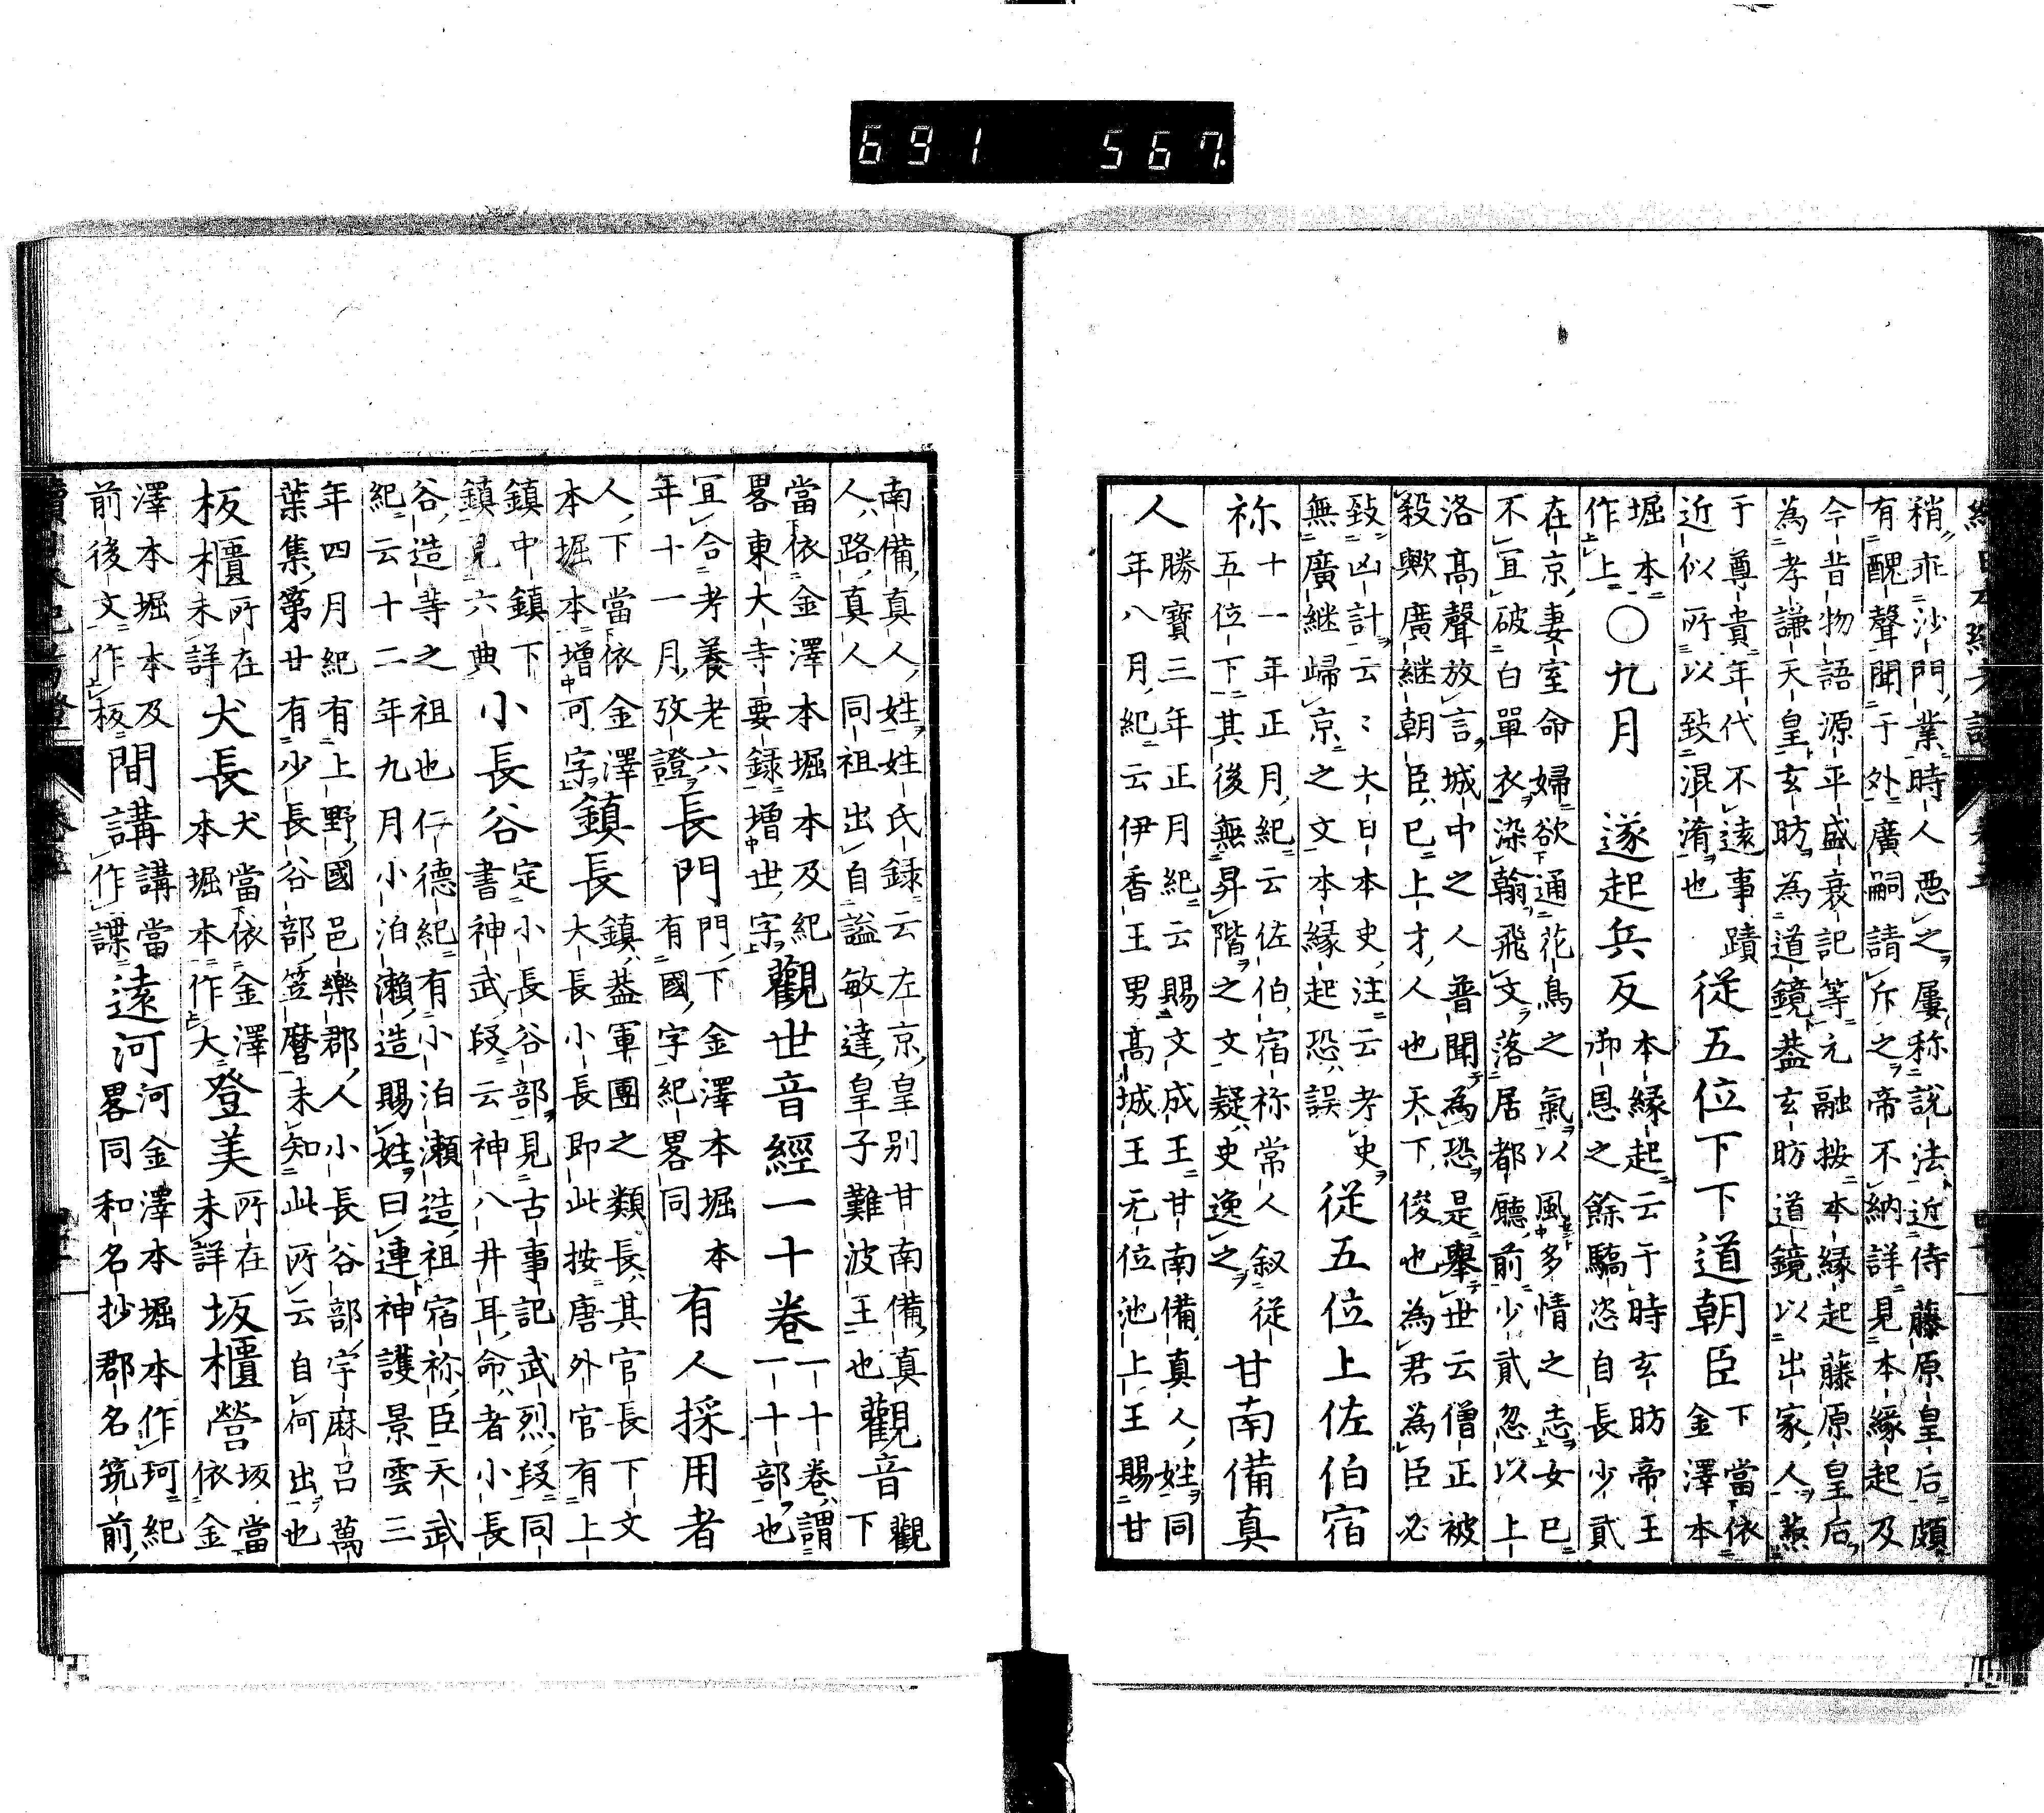 691 567
稍乖沙門業時人惡之屢称說法近侍藤原皇后頗
有醜聲聞于外廣嗣請斥之帝不納詳見本緣起及
今昔物語源平盛衰記等元融按本緣起藤原皇后
為孝謙天皇玄昉為道鏡蓋玄昉道鏡以出家人蒸
于尊貴年代不遠事蹟
近似所以致混淆也
從五位下下道朝臣
下當依
金澤本
堀本
作上
○九月 遂起兵反
本緣起云于時玄昉帝王
御恩之餘驕恣自長少貳
在京妻室命婦欲通花鳥之氣以風多情之志女已
不宜破白單衣染翰飛文落居都廳前少貳忽以上
洛高聲放言城中之人普聞為恐是舉世云僧正被
殺歟廣継朝臣已上才人也天下俊也為君為臣必
致凶計云〻大日本史注云考史
無廣継歸京之文本緣起恐誤
從五位上佐伯宿
祢
十一年正月紀云佐伯宿祢常人叙從
五位下其後無昇階之文疑史逸之
甘南備真
人
勝寶三年正月紀云賜文成王甘南備真人姓同
年八月紀云伊香王男高城王无位池上王賜甘
南備真人姓姓氏録云左京皇別甘南備真
人路真人同祖出自謚敏達皇子難波王也
觀音
觀
下
當依金澤本堀本及紀
畧東大寺要録増世字
觀世音經一十卷
一十卷謂
一十部也
宜合考養老六
年十一月攷證
長門
門下金澤本堀本
有國字紀畧同
有人採用者
人下當依金澤
本堀本増可字
鎮長
鎮蓋軍團之類長其官長下文
大長小長即此按唐外官有上
鎮中鎮下
鎮見六典
小長谷
定小長谷部見古事記武烈段同
書神武段云神八井耳命者小長
谷造等之祖也仁德紀有小泊瀬造祖宿祢臣天武
紀云十二年九月小泊瀬造賜姓曰連神護景雲三
年四月紀有上野國邑樂郡人小長谷部宇麻呂萬
葉集第廿有少長谷部笠麿未知此所云自何出也
板櫃
所在
未詳
犬長
犬當依金澤
本堀本作大
登美
所在
未詳
坂櫃營
坂當
依金
澤本堀本及
前後文作板
間講
講當
作諜
遠河
河金澤本堀本作珂紀
畧同和名抄郡名筑前